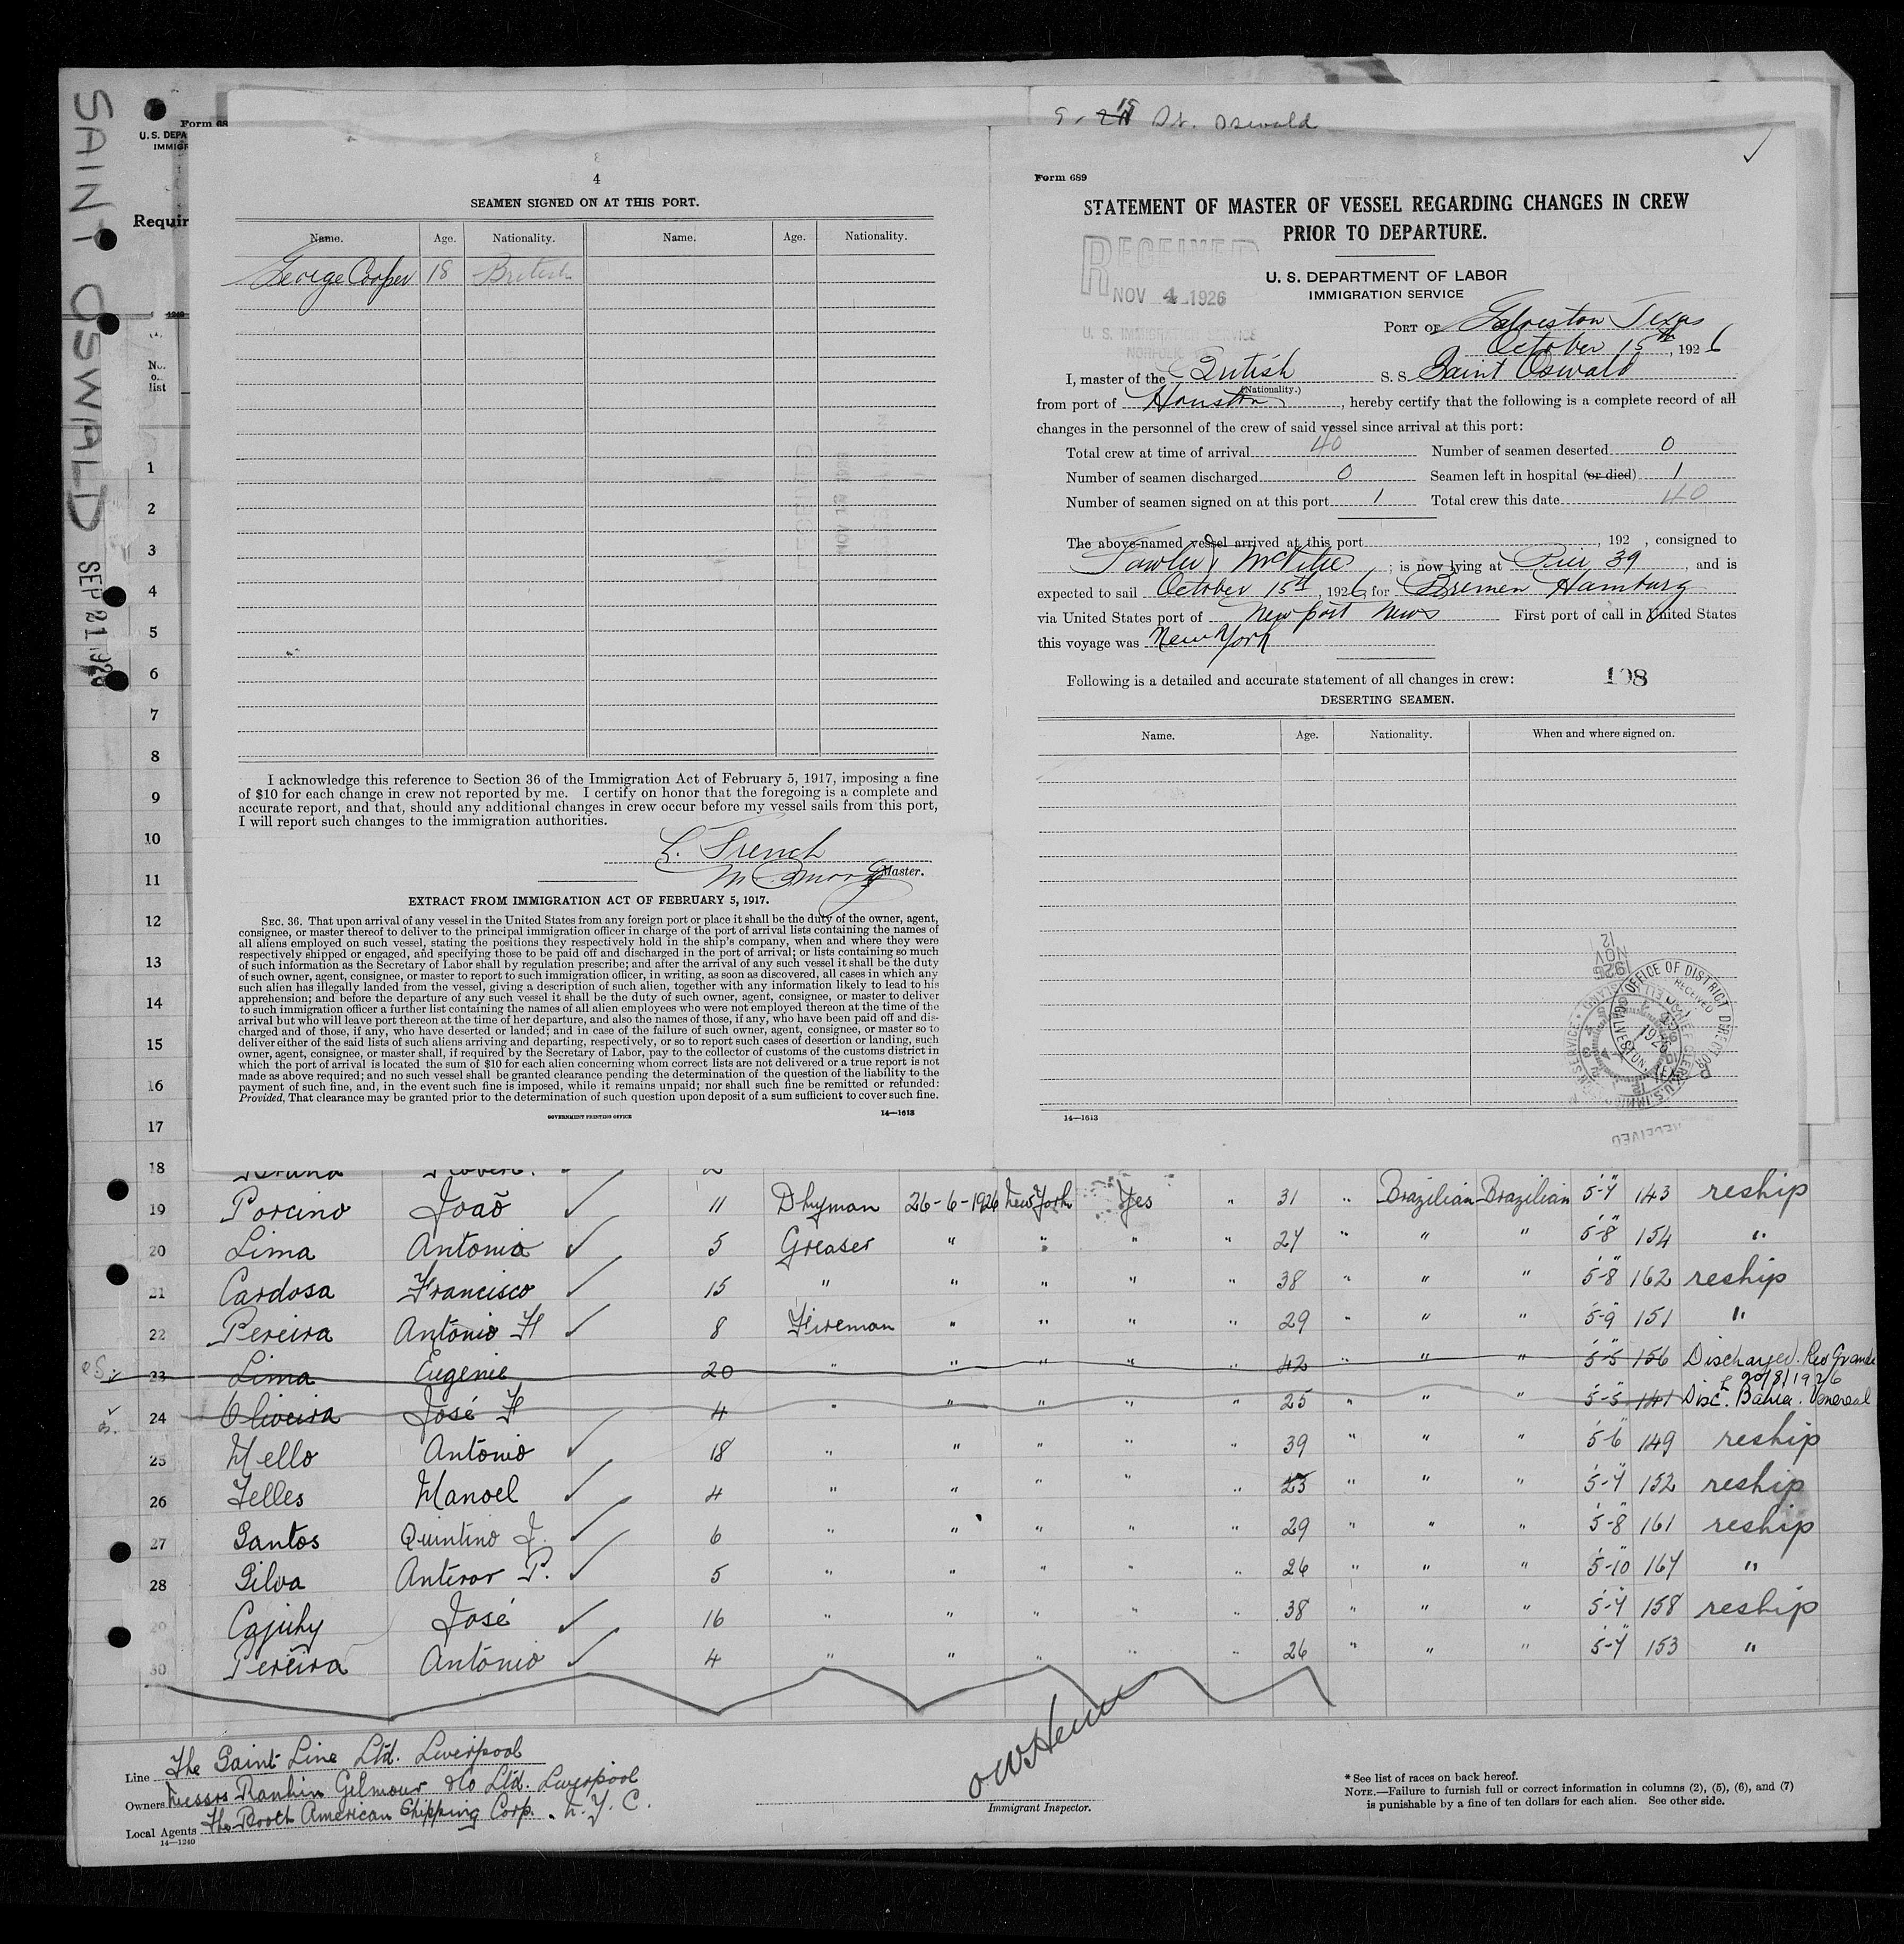 SAINT OSWALD SEP 21 1926
Form 68
U. S. DEPA
IMMIGR
Requir
No.
list
St. Oswald
4
SEAMEN SIGNED ON AT THIS PORT.
Name. Age. Nationality. Name. Age. Nationality.
George Cooper 18 British
I acknowledge this reference to Section 36 of the Immigration Act of February 5, 1917, imposing a fine
of $10 for each change in crew not reported by me. I certify on honor that the foregoing is a complete and
accurate report, and that, should any additional changes in crew occur before my vessel sails from this port,
I will report such changes to the immigration authorities.
French
Master.
EXTRACT FROM IMMIGRATION ACT OF FEBRUARY 5, 1917.
SEC. 36. That upon arrival of any vessel in the United States from any foreign port or place it shall be the duty of the owner, agent,
consignee, or master thereof to deliver to the principal immigration officer in charge of the port of arrival lists containing the names of
all aliens employed on such vessel, stating the positions they respectively hold in the ship's company, when and where they were
respectively shipped or engaged, and specifying those to be paid off and discharged in the port of arrival; or lists containing so much
of such information as the Secretary of Labor shall by regulation prescribe; and after the arrival of any such vessel it shall be the duty
of such owner, agent, consignee, or master to report to such immigration officer, in writing, as soon as discovered, all cases in which any
such alien has illegally landed from the vessel, giving a description of such alien, together with any information likely to lead to his
apprehension; and before the departure of any such vessel it shall be the duty of such owner, agent, consignee, or master to deliver
to such immigration officer a further list containing the names of all alien employees who were not employed thereon at the time of the
arrival but who will leave port thereon at the time of her departure, and also the names of those, if any, who have been paid off and dis-
charged and of those, if any, who have deserted or landed; and in case of the failure of such owner, agent, consignee, or master so to
deliver either of the said lists of such aliens arriving and departing, respectively, or so to report such cases of desertion or landing, such
owner, agent, consignee, or master shall, if required by the Secretary of Labor, pay to the collector of customs of the customs district in
which the port of arrival is located the sum of $10 for each alien concerning whom correct lists are not delivered or a true report is not
made as above required; and no such vessel shall be granted clearance pending the determination of the question of the liability to the
payment of such fine, and, in the event such fine is imposed, while it remains unpaid; nor shall such fine be remitted or refunded:
Provided, That clearance may be granted prior to the determination of such question upon deposit of a sum sufficient to cover such fine.
GOVERNMENT PRINTING OFFICE 14—1613
Form 689
STATEMENT OF MASTER OF VESSEL REGARDING CHANGES IN CREW
PRIOR TO DEPARTURE.
RECEIVED
NOV 4 1926
U. S. IMMIGRATION SERVICE
NORFOLK
U. S. DEPARTMENT OF LABOR
IMMIGRATION SERVICE
PORT OF Galveston Texas
October 15th, 1926
I, master of the British S. S. Saint Oswald
(Nationality.)
from port of Houston, hereby certify that the following is a complete record of all
changes in the personnel of the crew of said vessel since arrival at this port:
Total crew at time of arrival 40 Number of seamen deserted 0
Number of seamen discharged 0 Seamen left in hospital (or died) 1
Number of seamen signed on at this port 1 Total crew this date 40
The above-named vessel arrived at this port , 192 , consigned to
Fowler & McVitie ; is now lying at Pier 39, and is
expected to sail October 15th, 1926, for Bremen Hamburg
via United States port of Newport News First port of call in United States
this voyage was New York
Following is a detailed and accurate statement of all changes in crew: 108
DESERTING SEAMEN.
Name. Age. Nationality. When and where signed on.
12 NOV 1926
OFFICE OF DISTRICT DIRECTOR
RECEIVED
GALVESTON, TEX
RECEIVED
14—1613
1
2
3
4
5
6
7
8
9
10
11
12
13
14
15
16
17
18
19 Porcino Joaõ 11 Dkyman 26-6-1926 New York Yes " 31 " Brazilian Brazilian 5-7 143 reship
20 Lima Antonio 5 Greaser " " " " 27 " " " 5-8 154 "
21 Cardosa Francisco 15 " " " " " 38 " " " 5-8 162 reship
22 Pereira Antonio F 8 Fireman " " " " 29 " " " 5-9 151 "
23 Lima Eugenie 20 " " " " " 42 " " " 5-5 156 Discharged. Rio Grande
20/8/1926
24 Oliveira José F 4 " " " " " 25 " " " 5-5 141 Disc. Bahia. Venereal
25 Mello Antonio 18 " " " " " 39 " " " 5-6 149 reship
26 Telles Manoel 4 " " " " " 25 " " " 5-7 152 reship
27 Santos Quintino J. 6 " " " " " 29 " " " 5-8 161 reship
28 Silva Anteror P. 5 " " " " " 26 " " " 5-10 167 "
29 Cajuhy José 16 " " " " " 38 " " " 5-7 158 reship
30 Pereira Antonio 4 " " " " " 26 " " " 5-7 153 "
Line The Saint Line Ltd. Liverpool
Owners Messrs Rankin Gilmour & Co Ltd. Liverpool
Local Agents The Booth American Shipping Corp. N. Y. C.
14—1240
Immigrant Inspector.
* See list of races on back hereof.
NOTE.—Failure to furnish full or correct information in columns (2), (5), (6), and (7)
is punishable by a fine of ten dollars for each alien. See other side.